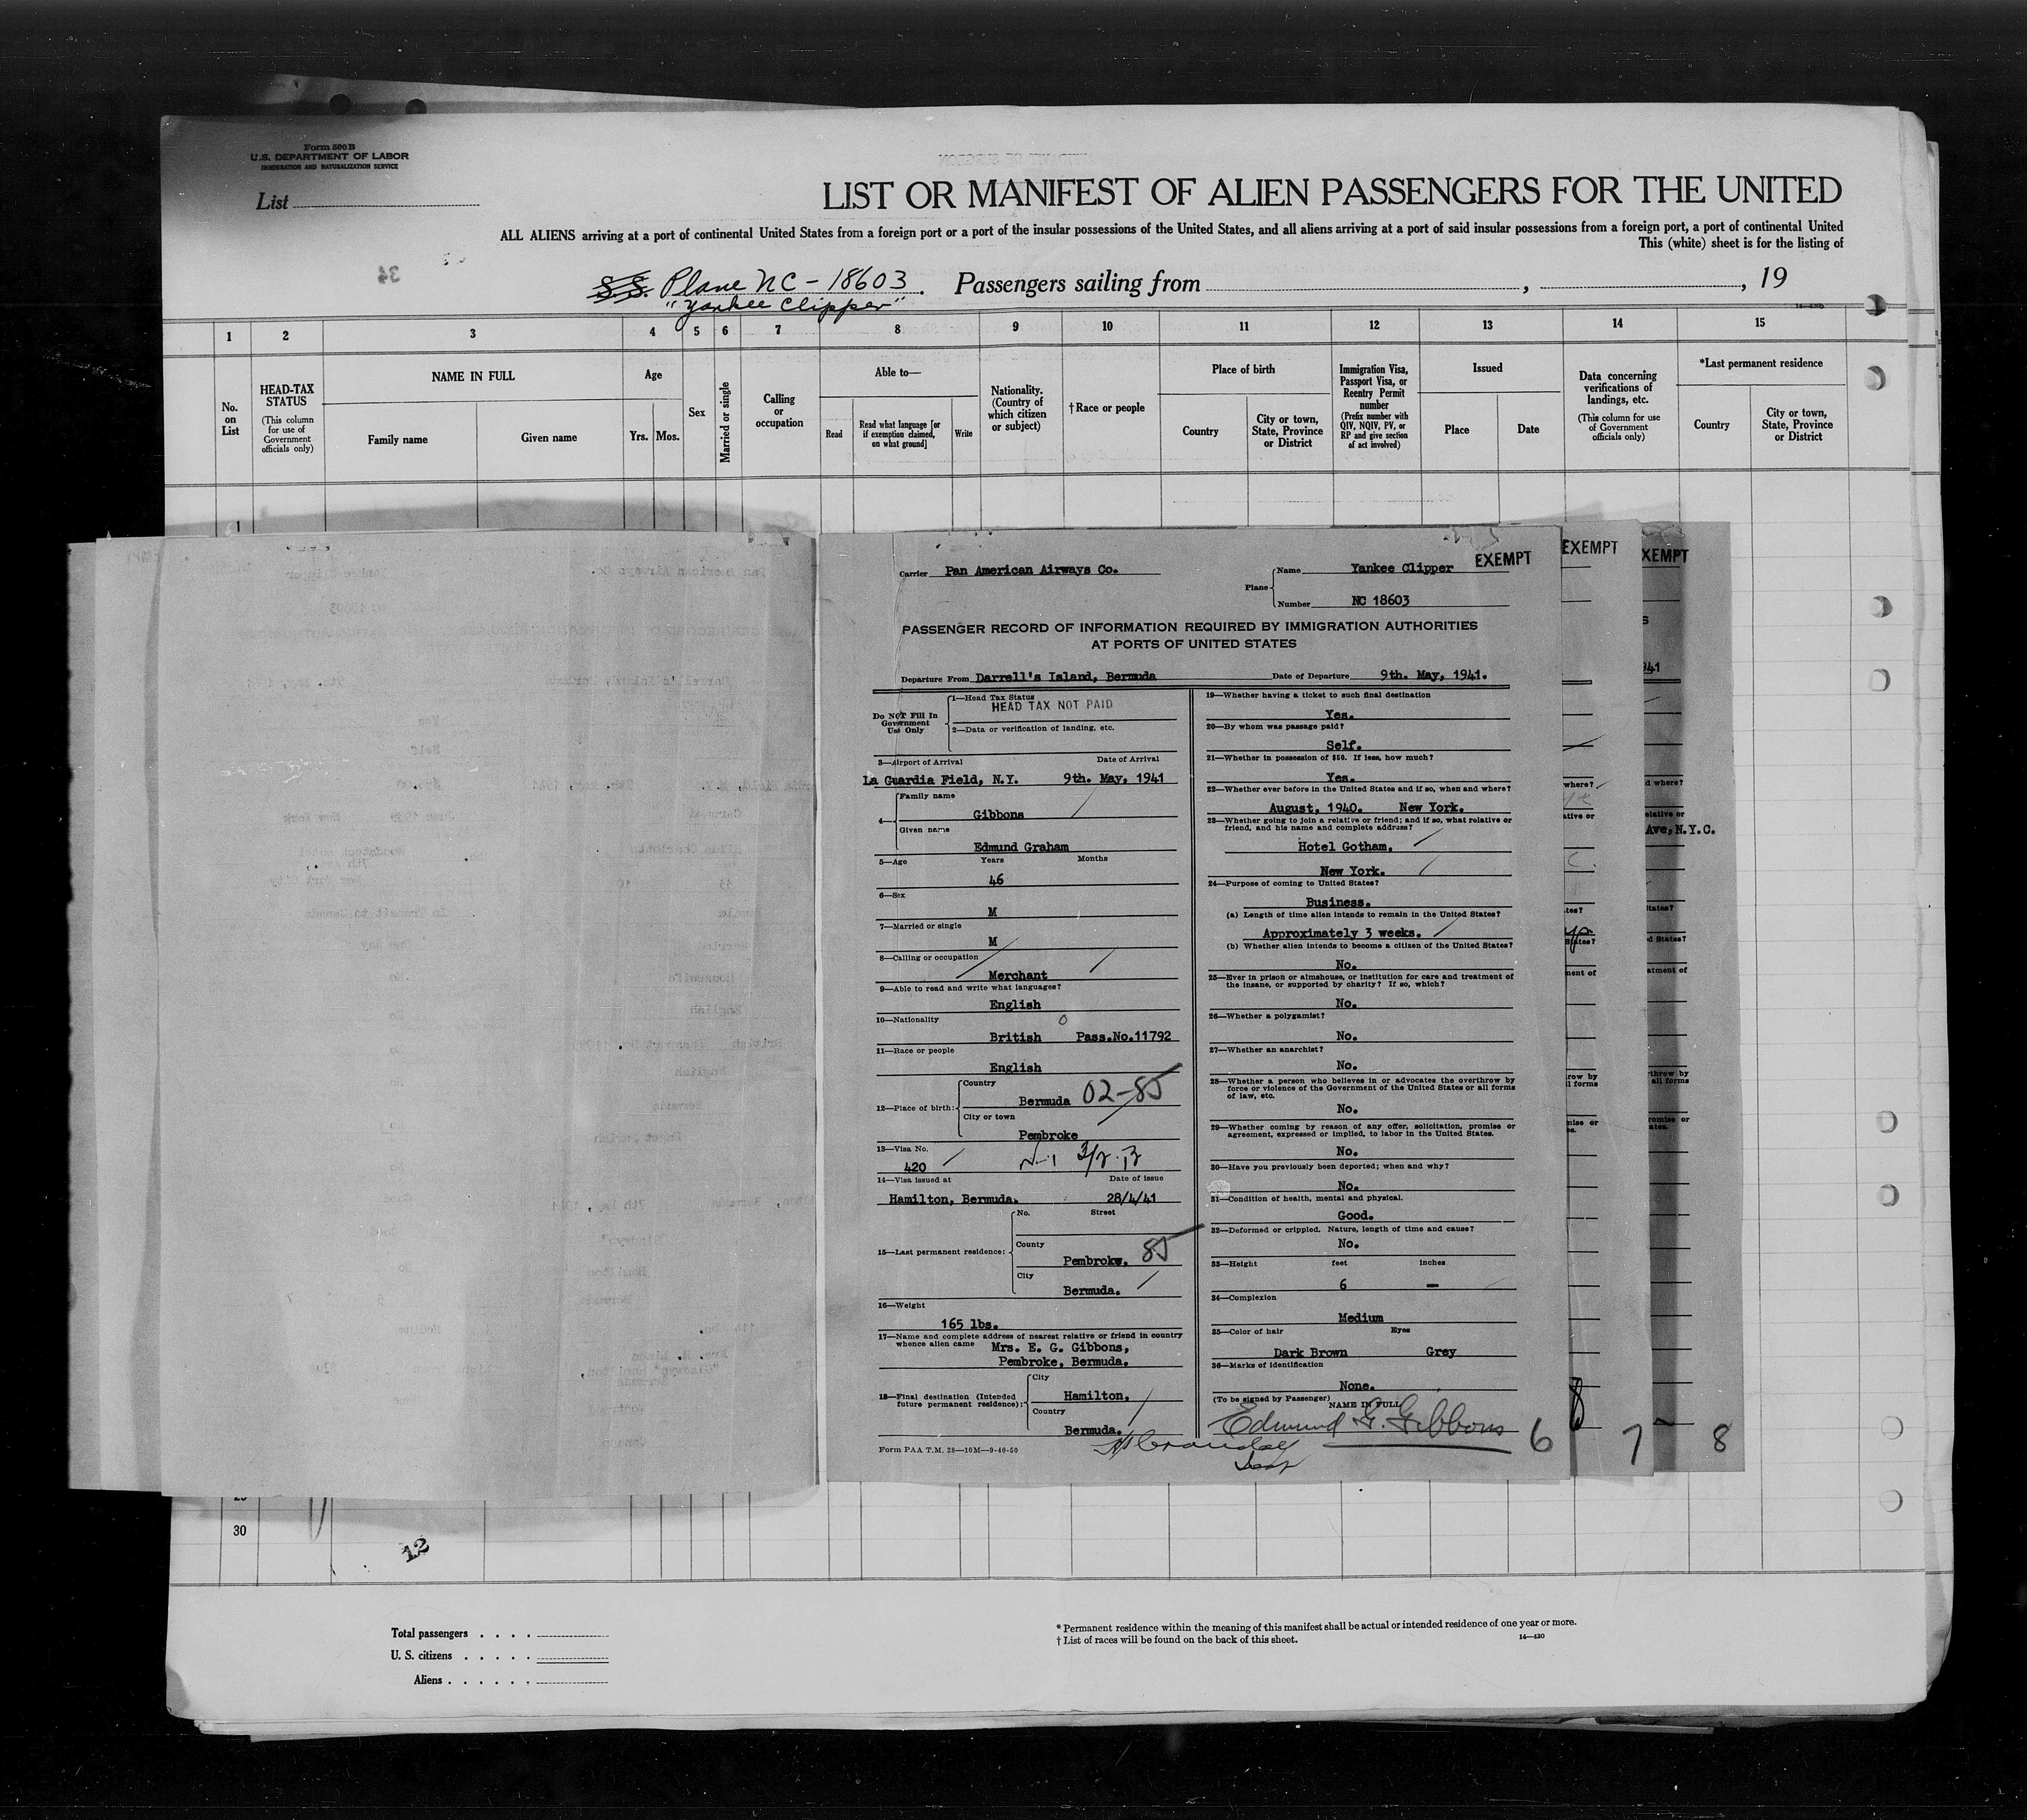 Form 500 B
U.S. DEPARTMENT OF LABOR
IMMIGRATION AND NATURALIZATION SERVICE
List
LIST OR MANIFEST OF ALIEN PASSENGERS FOR THE UNITED
ALL ALIENS arriving at a port of continental United States from a foreign port or a port of the insular possessions of the United States, and all aliens arriving at a port of said insular possessions from a foreign port, a port of continental United
This (white) sheet is for the listing of
34
S.S. Plane NC-18603. Passengers sailing from , , 19
"Yankee Clipper"
1 2 3 4 5 6 7 8 9 10 11 12 13 14 15
No. on List
HEAD-TAX STATUS
(This column for use of Government officials only)
NAME IN FULL
Family name
Given name
Age
Yrs. Mos.
Sex
Married or single
Calling or occupation
Able to—
Read
Read what language [or if exemption claimed, on what ground]
Write
Nationality. (Country of which citizen or subject)
†Race or people
Place of birth
Country
City or town, State, Province or District
Immigration Visa, Passport Visa, or Reentry Permit number
(Prefix number with QIV, NQIV, PV, or RP and give section of act involved)
Issued
Place
Date
Data concerning verifications of landings, etc.
(This column for use of Government officials only)
*Last permanent residence
Country
City or town, State, Province or District
1
EXEMPT
EXEMPT
EXEMPT
Carrier Pan American Airways Co.
Plane
Name Yankee Clipper
Number NC 18603
PASSENGER RECORD OF INFORMATION REQUIRED BY IMMIGRATION AUTHORITIES
AT PORTS OF UNITED STATES
Departure From Darrell's Island, Bermuda Date of Departure 9th. May, 1941.
Do NOT Fill In Government Use Only
1—Head Tax Status
HEAD TAX NOT PAID
2—Data or verification of landing, etc.
3—Airport of Arrival Date of Arrival
La Guardia Field, N.Y. 9th. May, 1941
4—
Family name
Gibbons
Given name
Edmund Graham
5—Age Years Months
46
6—Sex
M
7—Married or single
M
8—Calling or occupation
Merchant
9—Able to read and write what languages?
English
10—Nationality
British Pass.No.11792
11—Race or people
English
12—Place of birth:
Country
Bermuda 02-85
City or town
Pembroke
13—Visa No.
420
14—Visa issued at Date of issue
Hamilton, Bermuda. 28/4/41
No. Street
15—Last permanent residence:
County
Pembroke. 85
City
Bermuda.
16—Weight
165 lbs.
17—Name and complete address of nearest relative or friend in country
whence alien came Mrs. E. G. Gibbons,
Pembroke, Bermuda.
18—Final destination (Intended
future permanent residence):
City
Hamilton.
Country
Bermuda.
Form PAA T.M. 28—10M—9-40-50
19—Whether having a ticket to such final destination
Yes.
20—By whom was passage paid?
Self.
21—Whether in possession of $50. If less, how much?
Yes.
22—Whether ever before in the United States and if so, when and where?
August, 1940. New York.
23—Whether going to join a relative or friend; and if so, what relative or
friend, and his name and complete address?
Hotel Gotham,
New York.
24—Purpose of coming to United States?
Business.
(a) Length of time alien intends to remain in the United States?
Approximately 3 weeks.
(b) Whether alien intends to become a citizen of the United States?
No.
25—Ever in prison or almshouse, or institution for care and treatment of
the insane, or supported by charity? If so, which?
No.
26—Whether a polygamist?
No.
27—Whether an anarchist?
No.
28—Whether a person who believes in or advocates the overthrow by
force or violence of the Government of the United States or all forms
of law, etc.
No.
29—Whether coming by reason of any offer, solicitation, promise or
agreement, expressed or implied, to labor in the United States.
No.
30—Have you previously been deported; when and why?
No.
31—Condition of health, mental and physical.
Good.
32—Deformed or crippled. Nature, length of time and cause?
No.
33—Height feet inches
6 —
34—Complexion
Medium
35—Color of hair Eyes
Dark Brown Grey
36—Marks of identification
None.
(To be signed by Passenger)
NAME IN FULL
Edmund G. Gibbons
6 7 8
Ave, N.Y.C.
30
12
Total passengers
U. S. citizens
Aliens
* Permanent residence within the meaning of this manifest shall be actual or intended residence of one year or more.
† List of races will be found on the back of this sheet.
14—430